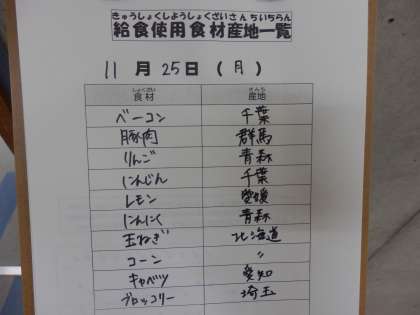 きゅうしょくしようしょくざいさんちいちらん
給食使用食材産地一覧
11月25日(月)
しょくざい さんち
食材 産地
ベーコン 千葉
豚肉 群馬
りんご 青森
にんじん 千葉
レモン 愛媛
にんにく 青森
玉ねぎ 北海道
コーン 〃
キャベツ 愛知
ブロッコリー 埼玉